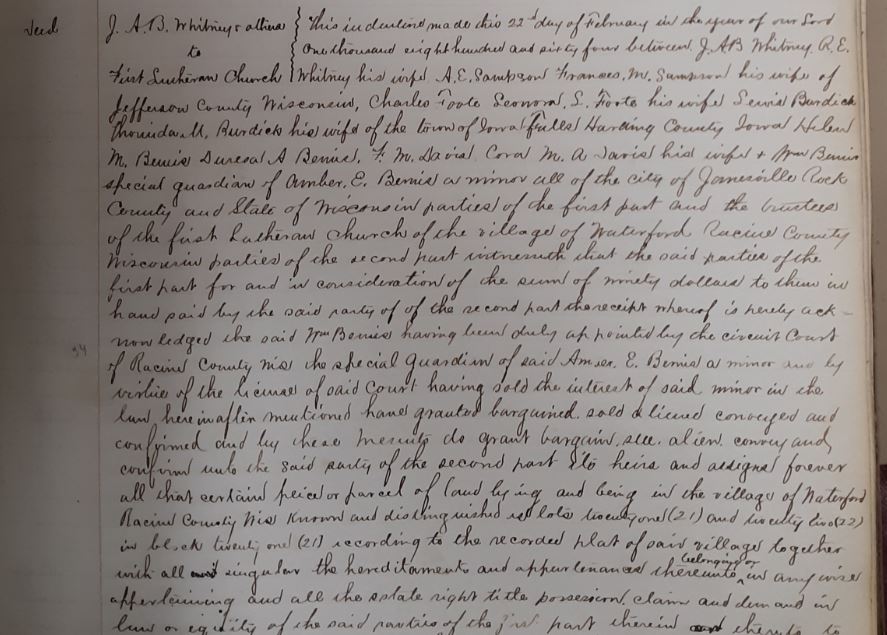 Deed J. A. B. Whitney & others This indenture made this 22d day of February in the year of our Lord
to One thousand eight hundred and sixty four between J. A B Whitney R. E.
First Lutheran Church Whitney his wife, A. E. Sampson Frances. M. Sampson his wife of
Jefferson County Wisconsin, Charles Foote Leonora. S. Foote his wife Lewis Burdick
M. Burdick his wife of the town of Iowa Falls Harding County Iowa Helen
M. Bemis A Bemis. F. M. Davis. Cora M. A Davis his wife + Wm Bemis
special guardian of Amber. E. Bemis a minor all of the city of Janesville Rock
County and State of Wisconsin parties of the first part and the trustees
of the first Lutheran Church of the village of Waterford Racine County
Wisconsin parties of the second part witnesseth that the said parties of the
first part for and in consideration of the sum of ninety dollars to them in
hand said by the said party of of the second part the receipt whereof is hereby ack-
nowledged the said Wm Bemis having been duly appointed by the circuit Court
34 of Racine County Wis the special Guardian of said Amber. E. Bemis a minor and by
virtue of the license of said Court having sold the interest of said minor in the
law hereinafter mentioned have granted bargained. sold aliened conveyed and
confirmed and by these presents do grant bargain, sell. alien. convey and
confirm unto the said party of the second part & to heirs and assigns forever
all that certain peice or parcel of land lying and being in the village of Waterford
Racine County Wis Known and distinguished as lots twenty one (21) and twenty two (22)
in block twenty one (21) according to the recorded plat of said village together
with all singular the hereditaments and appurtenances thereunto belonging or in any wise
appertaining and all the estate right title possession. claim and demand in
law or equity of the said parties of the first part therein thereto to